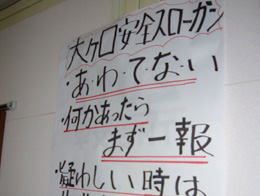 大ケ口安全スローガン
・あ・わ・てない
・何かあったら
まず一報
・疑わしい時は